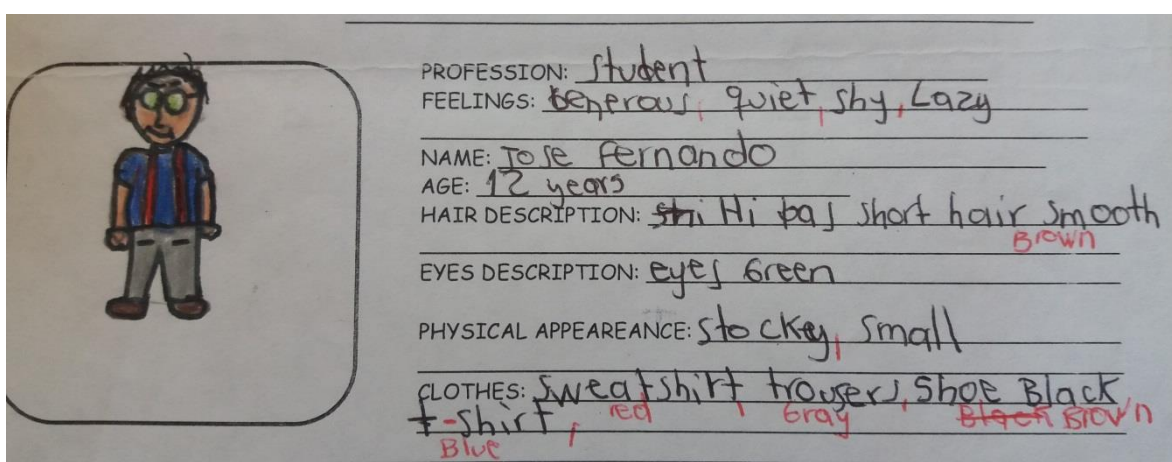 PROFESSION: Student
FEELINGS: Generous, quiet, shy, Lazy
NAME: Jose Fernando
AGE: 12 years
HAIR DESCRIPTION: Hi has short hair smooth
Brown
EYES DESCRIPTION: eyes Green
PHYSICAL APPEAREANCE: Stockey, Small
CLOTHES: Sweatshirt, trousers, Shoe Black
red Gray Black Brown
t-shirt,
Blue